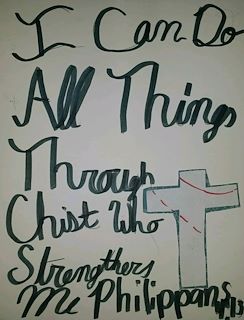 I Can Do
All Things
Through
Chist Who
Strengthers
Me Philippans 4:13